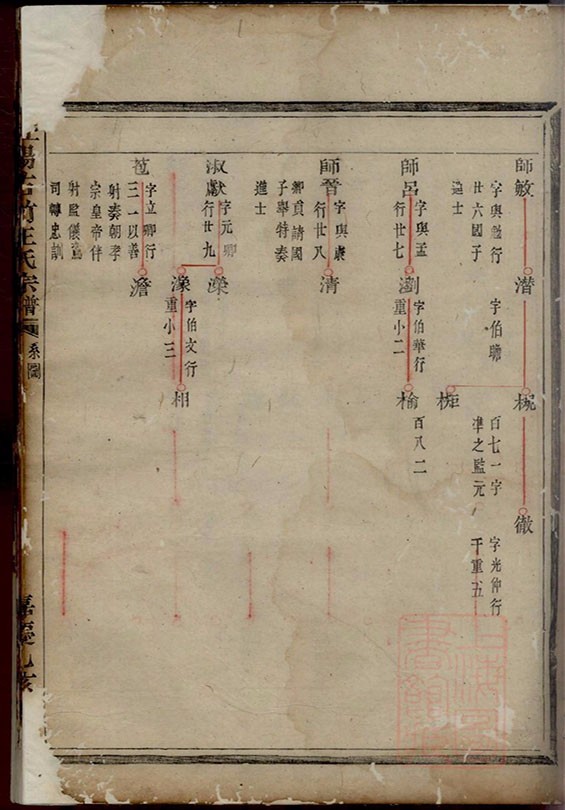 師敏
字與
行
廿六國子
進士
潛
字伯
椀
百七一字
準之監元
徹
字光仲行
千重五
柜
師呂
字與孟
行廿七
瀏
字伯華行
重小二
榆
百八二
師晉
字與康
行廿八
鄉貢請國
子舉特奏
進士
清
淑獻
字元卿
行廿九
濼
濠
字伯文行
重小三
相
苞
字立卿行
三一以善
射奏朝孝
宗皇帝伴
射監儀鸞
司轉忠訓
澹
陽古竹王氏宗譜
系圖
嘉慶乙亥